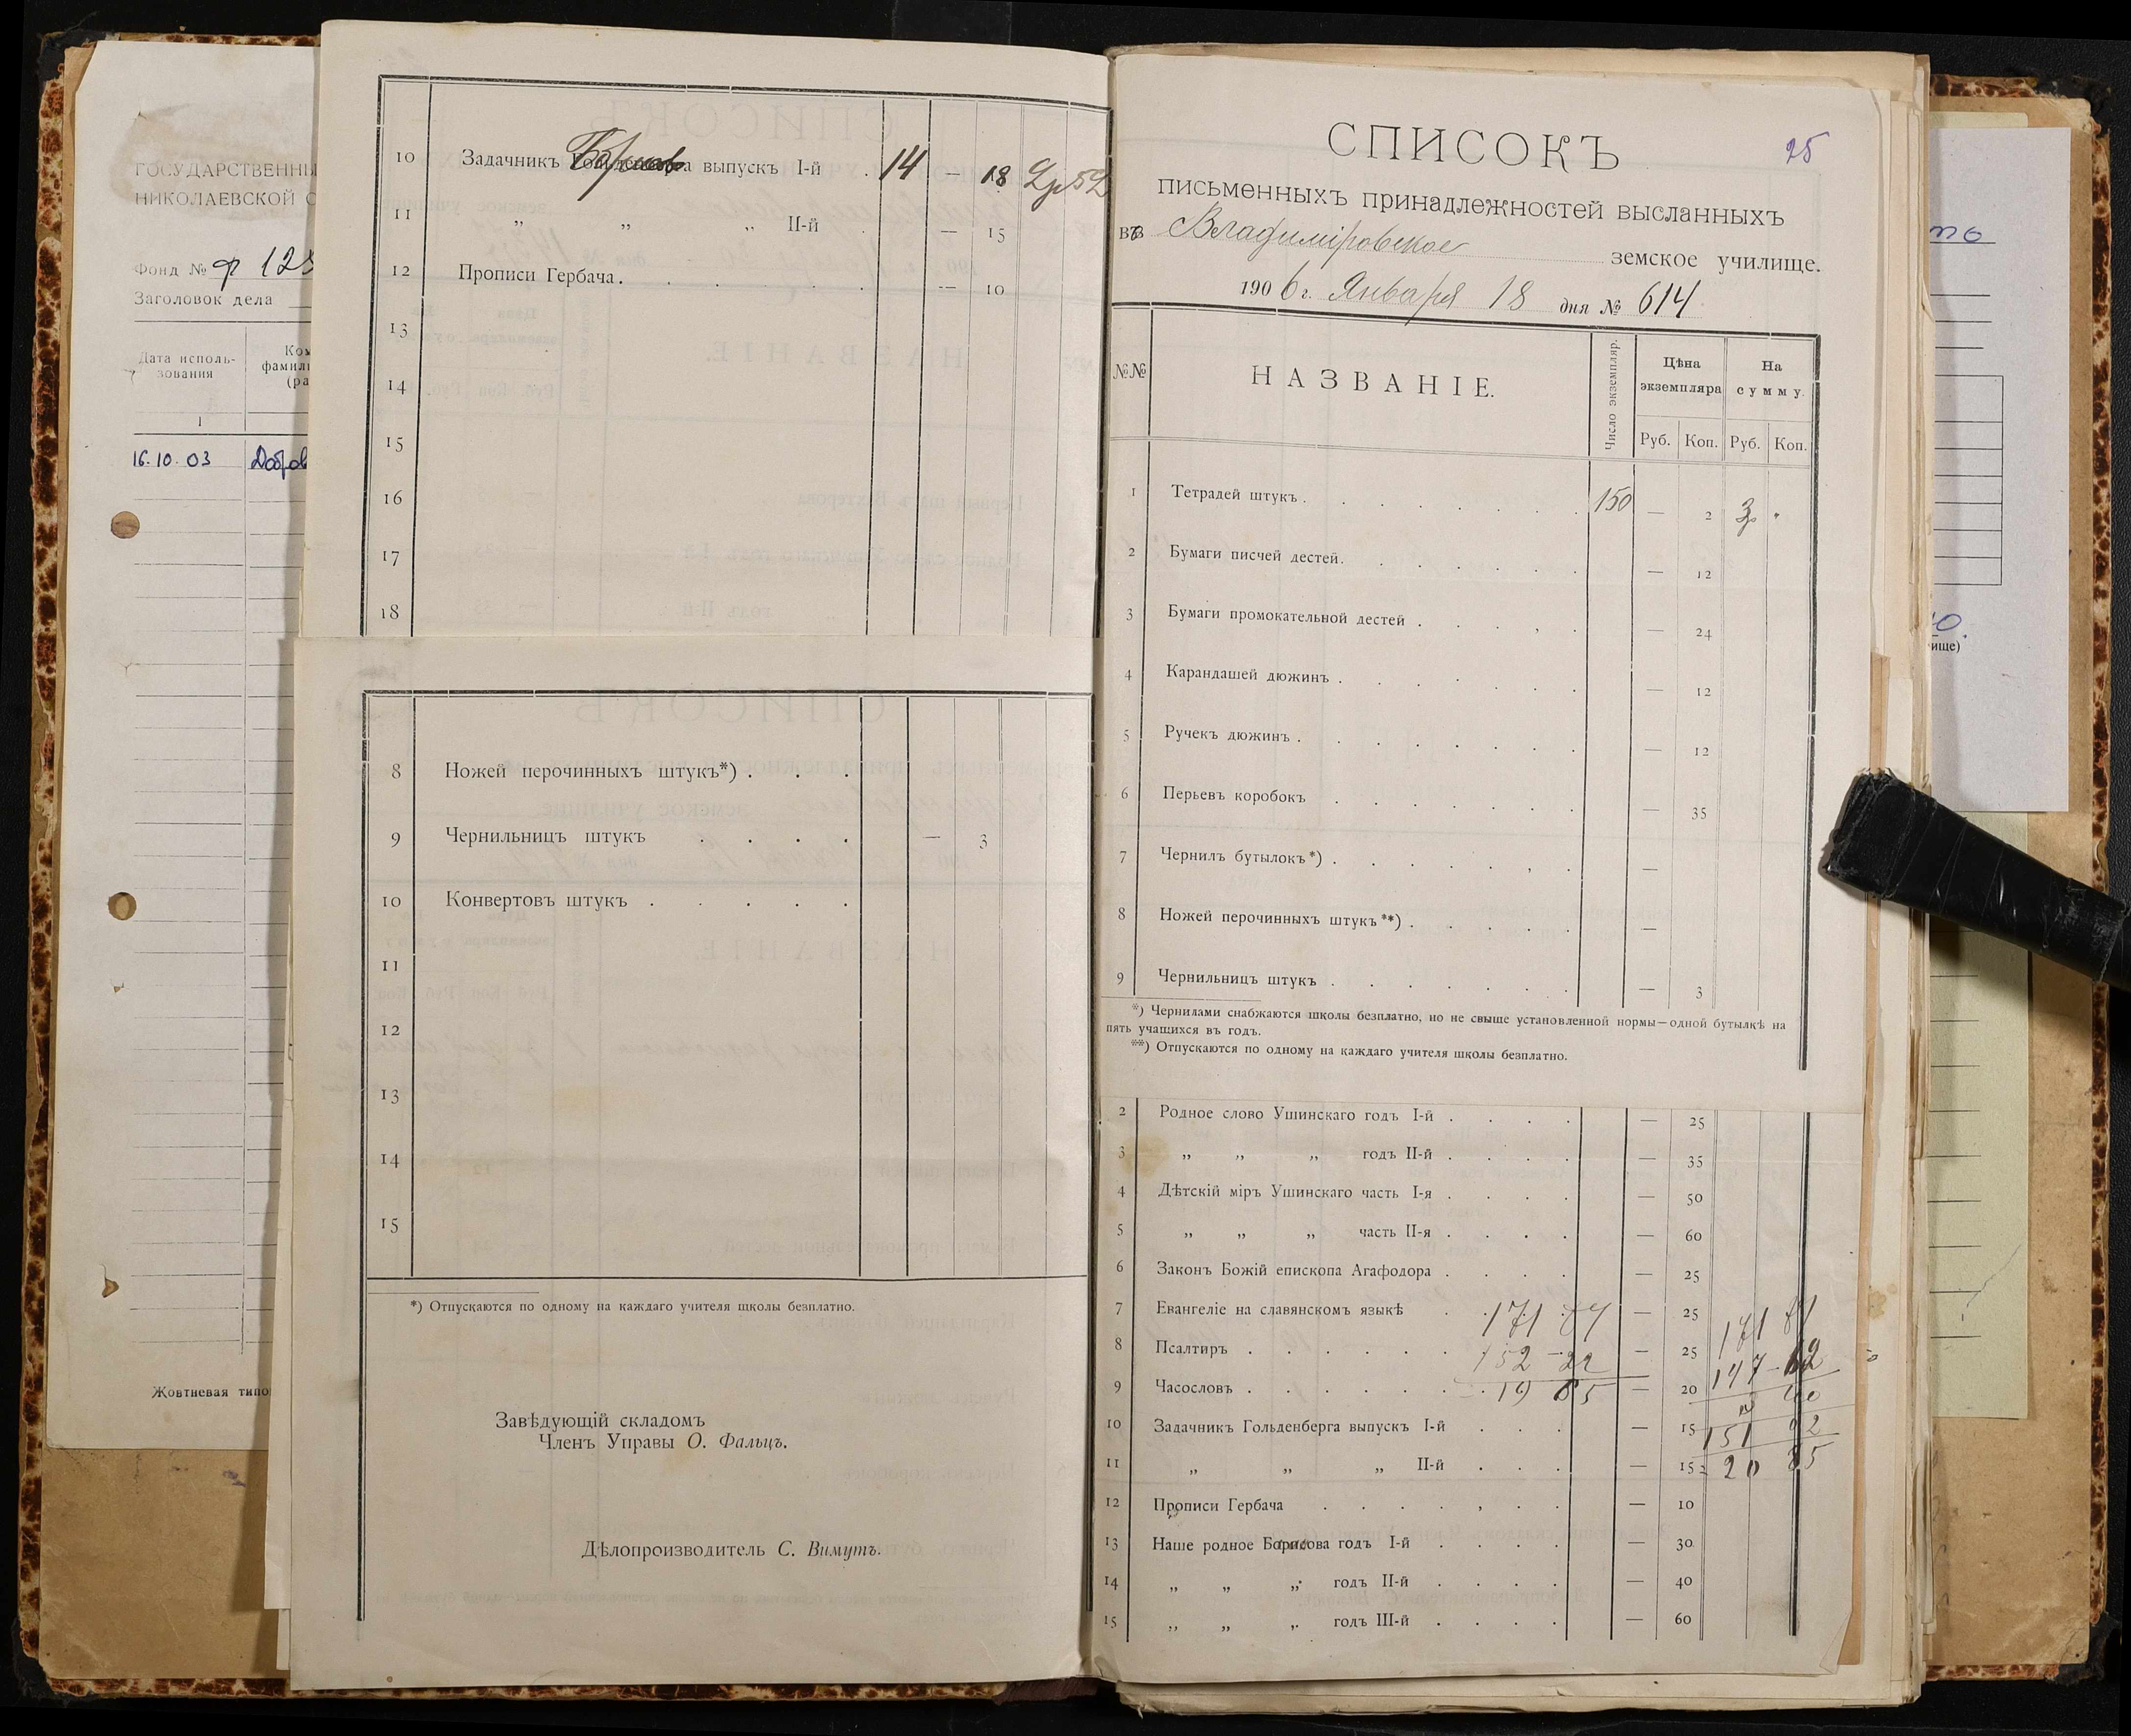 ГОСУДАРСТВЕННЫ
НИКОЛАЕВСКОЙ О
Фонд № ф 123
Заголовок дела
Дата исполь-
зования
Ко
фамил
(ра
1
16.10.03 Добров
Жовтневая типо
10 Задачникъ выпускъ I-й . 14 — 18 2р52
11 „ „ „ II-й . — 15
12 Прописи Гербача. . . . . . — 10
13
14
15
16
17
18
8 Ножей перочинныхъ штукъ*) . . .
9 Чернильницъ штукъ . . . . — 3
10 Конвертовъ штукъ . . . . .
11
12
13
14
15
*) Отпускаются по одному на каждаго учителя школы безплатно.
Завѣдующій складомъ
Членъ Управы О. Фальцъ.
Дѣлопроизводитель С. Вимутъ.
25
СПИСОКЪ
письменныхъ принадлежностей высланныхъ
въ Владиміровское земское училище.
1906 г. Января 18 дня № 614
№№ НАЗВАНІЕ. Число экземпляр. Цѣна экземпляра На сумму.
Руб. Коп. Руб. Коп.
1 Тетрадей штукъ . . . . . . . . 150 — 2 3р
2 Бумаги писчей дестей. . . . . . . — 12
3 Бумаги промокательной дестей . . . . . — 24
4 Карандашей дюжинъ . . . . . . . — 12
5 Ручекъ дюжинъ . . . . . . . . — 12
6 Перьевъ коробокъ . . . . . . . — 35
7 Чернилъ бутылокъ*) . . . . . . . —
8 Ножей перочинныхъ штукъ**) . . . . . —
9 Чернильницъ штукъ . . . . . . . — 3
*) Чернилами снабжаются школы безплатно, но не свыше установленной нормы—одной бутылкѣ на
пять учащихся въ годъ.
**) Отпускаются по одному на каждаго учителя школы безплатно.
2 Родное слово Ушинскаго годъ I-й . . . . — 25
3 „ „ „ годъ II-й . . . . — 35
4 Дѣтскій міръ Ушинскаго часть I-я . . . . — 50
5 „ „ „ часть II-я . . . . — 60
6 Законъ Божій епископа Агафодора . . . . — 25
7 Евангеліе на славянскомъ языкѣ . 171 — 25 171
8 Псалтирь . . . . . . 152 — 22 — 25 147
9 Часословъ . . . . . . 19 — 20
10 Задачникъ Гольденберга выпускъ I-й . . . — 15 151
11 „ „ „ II-й . . . — 15 20
12 Прописи Гербача . . . . , . . — 10
13 Наше родное Борисова годъ I-й . . . . — 30
14 „ „ „ годъ II-й . . . . — 40
15 „ „ „ годъ III-й . . . . — 60
ище)